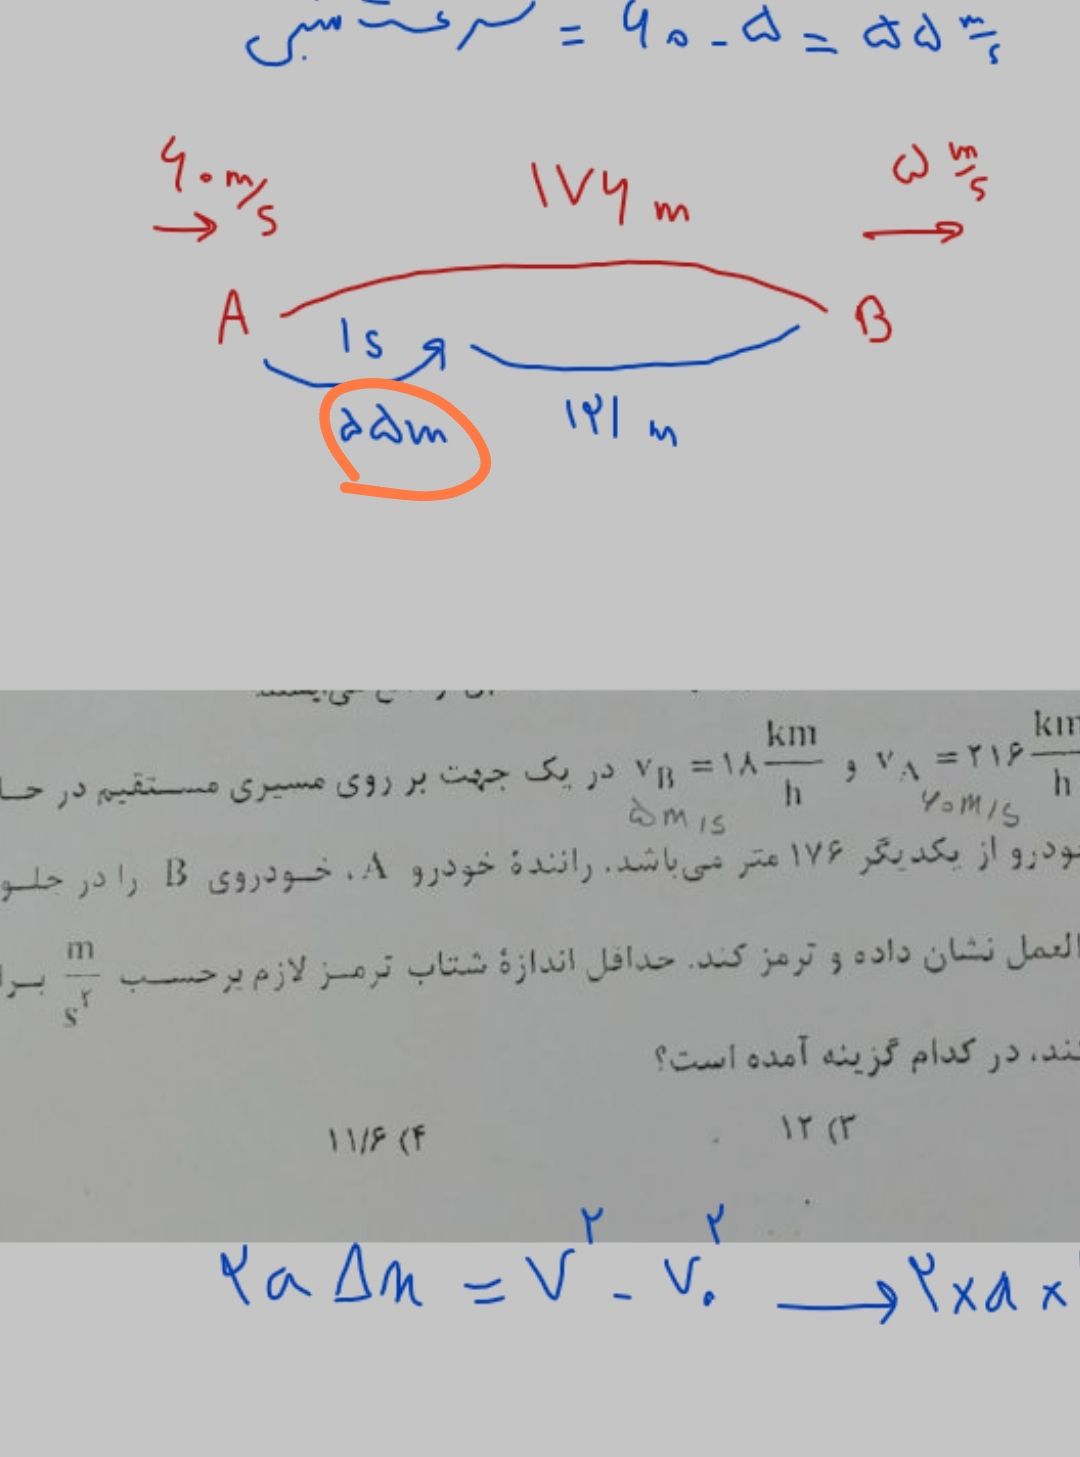 سرعت نسبی = ۶۰ - ۵ = ۵۵ m/s
۶۰ m/s
۱۷۶ m
۵ m/s
A
B
۱s
۵۵m
۱۲۱ m
v_A = ۲۱۶ km/h و v_B = ۱۸ km/h در یک جهت بر روی مسیری مستقیم در حـ
۶۰m/s
۵m/s
ودرو از یکدیگر ۱۷۶ متر می‌باشد. رانندهٔ خودرو A، خودروی B را در جلو
العمل نشان داده و ترمز کند. حداقل اندازهٔ شتاب ترمز لازم برحسب m/s² بر
ند، در کدام گزینه آمده است؟
۳) ۱۲
۴) ۱۱/۶
۲aΔx = v² - v₀² → ۲×a×